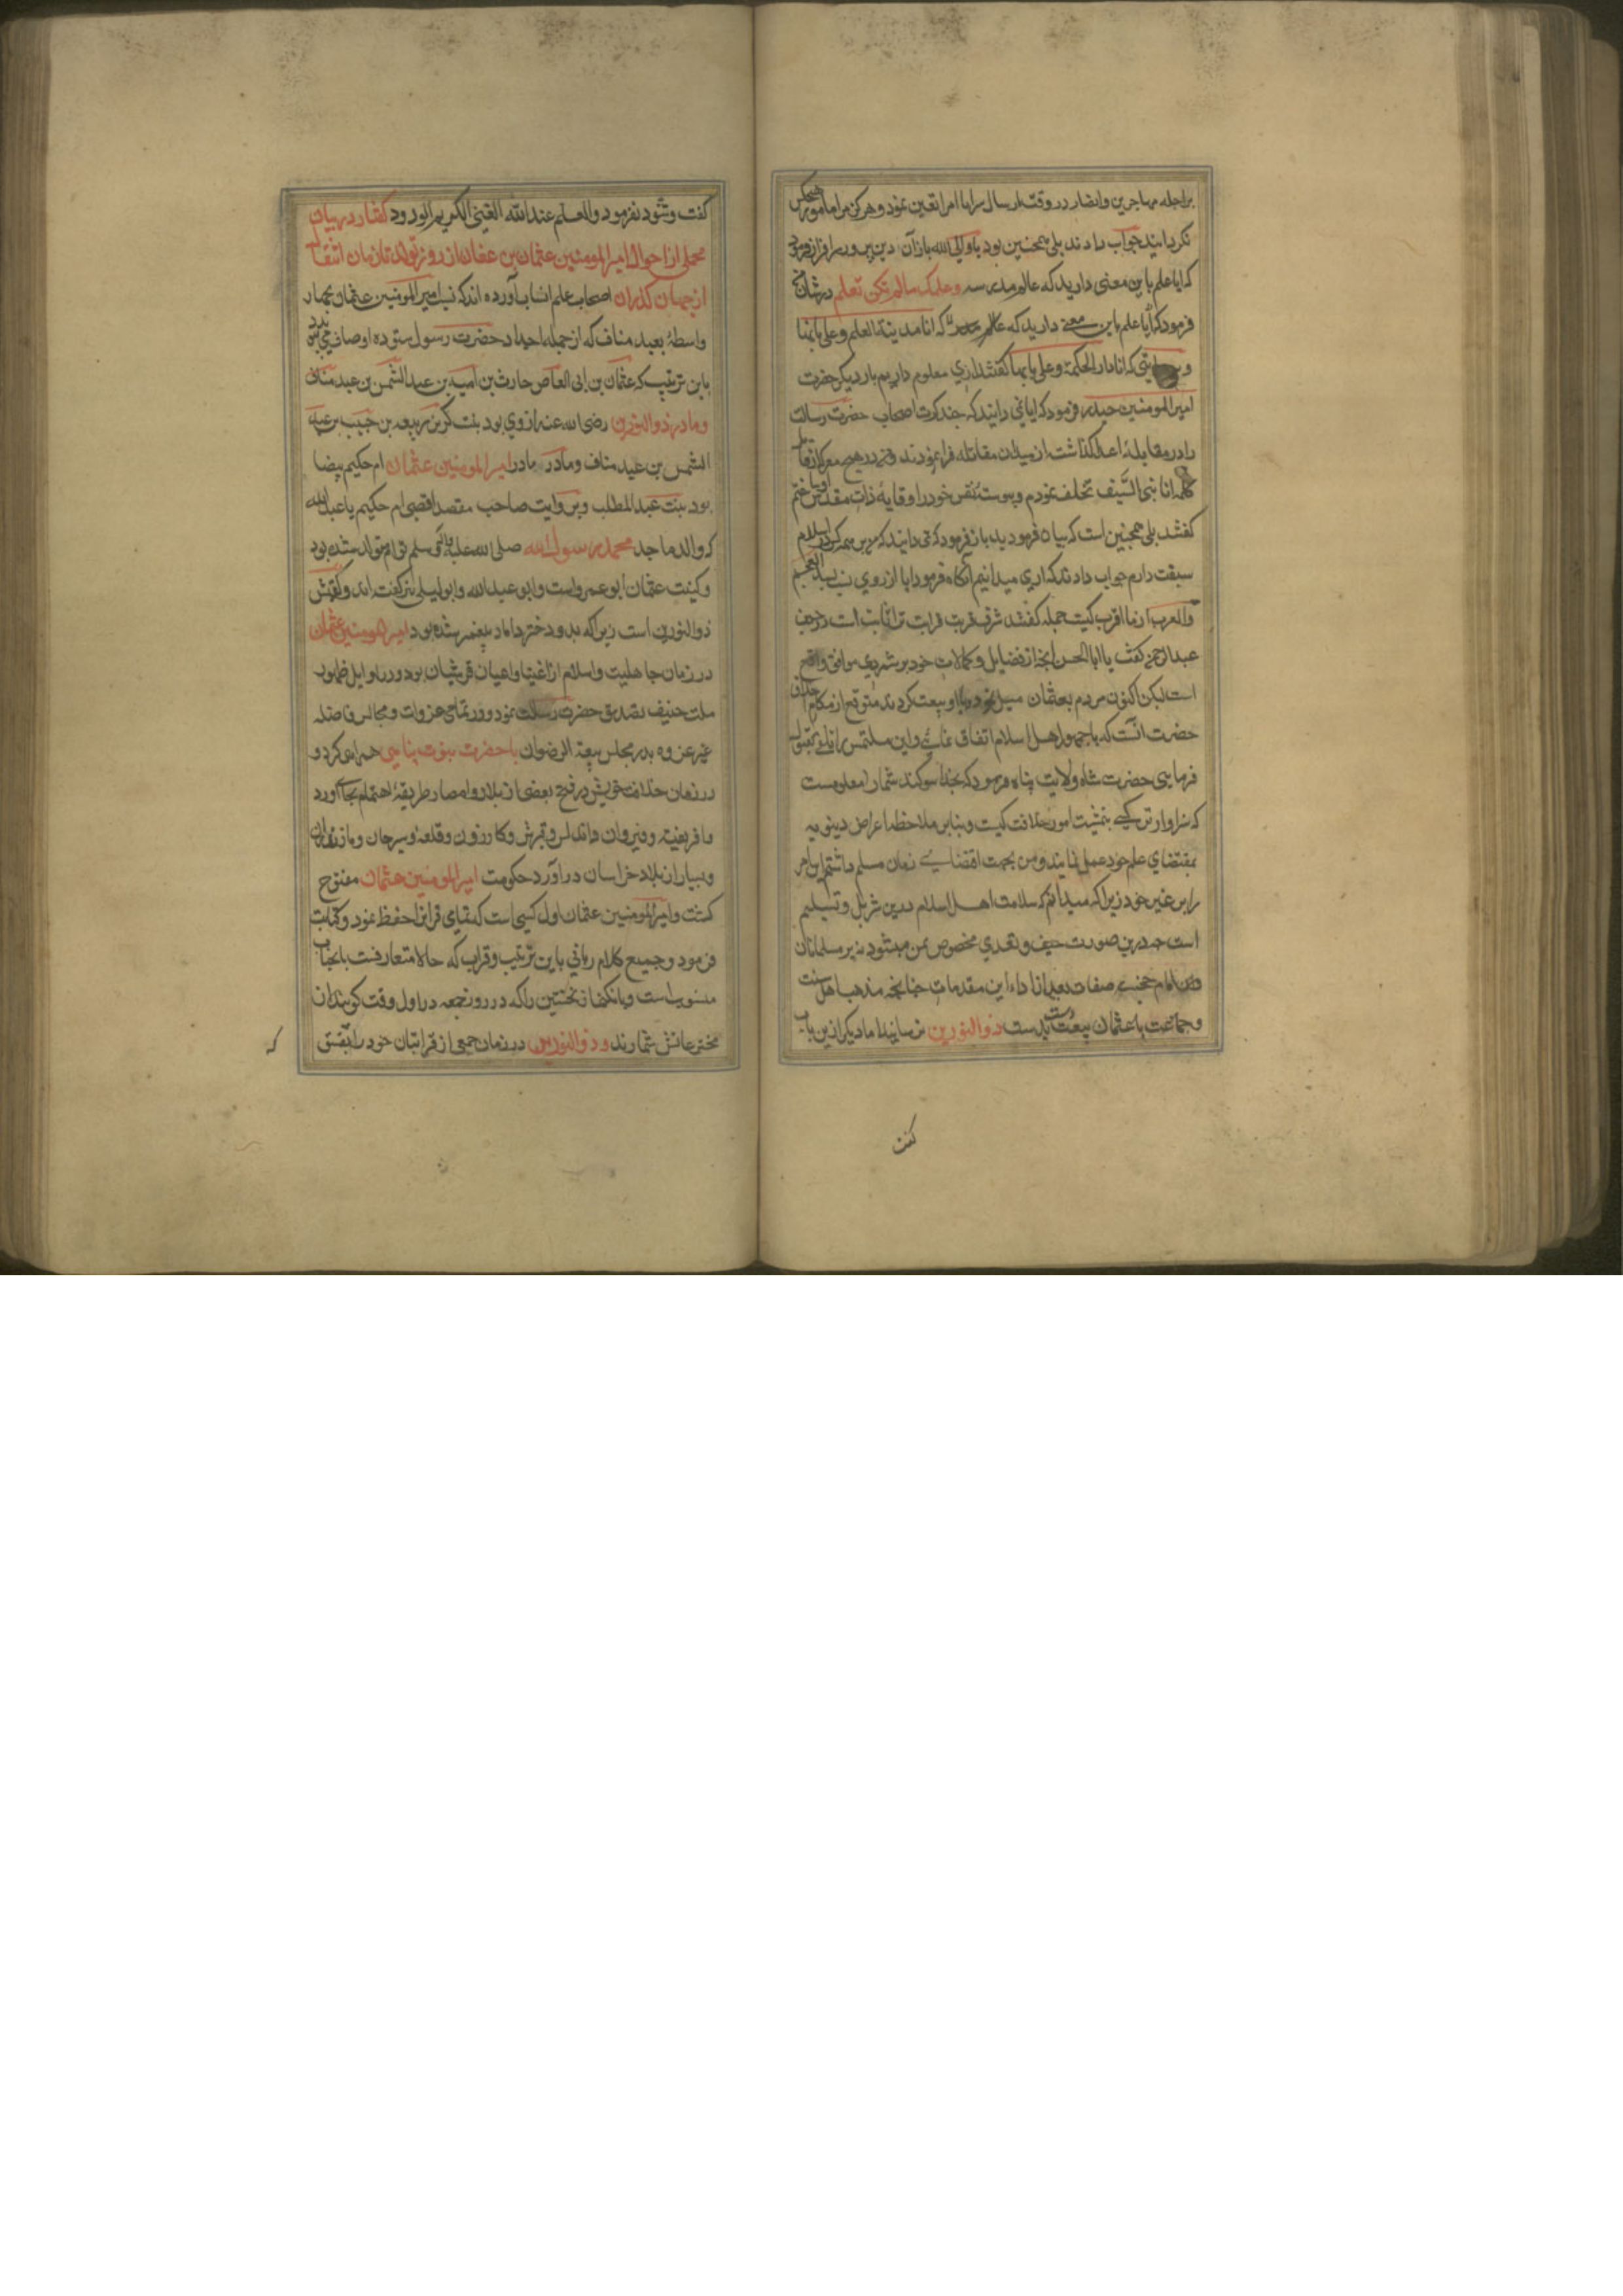 بر اجله مهاجرین و انصار در وقت ارسال سرایا امرا تعین نمود و هرگز مرا مامور هیچکس
نکردانید جواب دادند بلی همچنین بود یا ولی الله باز آن دین پرور سرافراز فرمود
که ایا علم باین معنی دارید که عالم مدرسه وعلمک مالم تکن تعلم در شان
فرمود که آیا علم باین معنی دارید که که انا مدینة العلم و علی بابها
که انا دار الحکمة و علی بابها گفتند اری معلوم داریم بار دیگر حضرت
امیرالمومنین حیدر فرمود که ایا می دانید که چند کرت اصحاب حضرت رسالت
را در مقابله اعدا گذاشته از میدان مقاتله فرار نمودند و من در هیچ معرکه از
انا نبی السیف تخلف ننمودم و پیوسته نفس خود را وقایه ذات مقدس
گفتند بلی همچنین است که بیان فرمودید باز فرمود که می دانید که من بر همه کس در اسلام
سبقت دارم جواب دادند که اری میدانیم آنگاه فرمود ایا از روی نسب بسید العجم
والعرب از ما اقرب کیست جمله گفتند شرف قربت قرابت ترا ثابت است
عبدالرحمن گفت یا ابا الحسن انچه از فضایل و کمالات خود بر شمردی موافق واقع
است لیکن اکنون مردم بعثمان میل نموده با او بیعت کردند متوقع از مکارم اخلاق
حضرت آنست که با جمهور اهل اسلام اتفاق نمائی و این ملتمس را تلقی بقبول
فرمایی حضرت شاه ولایت پناه فرمود که بخدا سوگند شما را معلومست
که سزاوارترین کسی بتمشیت امور خلافت کیست و بنابر ملاحظه اعراض دنیویه
بمقتضای علم خود عمل نمی نمایند و من بجهت اقتضای زمان مسلم داشتم این امر
را بر غیر خود زیرا که میدانم که سلامت اهل اسلام درین تنزیل و تسلیم
است چه درین صورت حیف و تعدی مخصوص بمن میشود نه بر مسلمانان
و آن امام حجسته صفات بعد از اداء این مقدمات چنانچه مذهب اهل سنت
و جماعت با عثمان بیعت بدست ذوالنورین نرسانید اما دیگر ازین باب
گفت
گفت و شنود نفرمود والعلم عند الله الغنی الکریم الودود گفتار در بیان
مجملی از احوال امیرالمومنین عثمان بن عفان از روز تولد تا زمان انتقال
از جهان گذران اصحاب علم انساب آورده اند که نسب امیرالمومنین عثمان بچهار
واسطه بعبد مناف که از جمله اجداد حضرت رسول ستوده اوصاف می پیوندد
باین ترتیب که عثمان بن ابی العاص حارث بن امیه بن عبد الشمس بن عبد مناف
و مادر ذوالنورین رضی الله عنه اروی بود بنت کریز بن ربیعه بن حبیب بن عبد
الشمس بن عبد مناف و مادر مادر امیرالمومنین عثمان ام حکیم بیضا
بود بنت عبد المطلب و بروایت صاحب مقصد اقصی ام حکیم با عبدالله
که والد ماجد محمد رسول الله صلی الله علیه و اله وسلم توام متولد شده بود
و کنیت عثمان ابو عمرو است و ابو عبد الله و ابو لیلی نیز گفته اند و لقبش
ذوالنورین است زیرا که بدو دختر داماد پیغمبر شده بود امیرالمومنین عثمان
در زمان جاهلیت و اسلام از اغنیا و اعیان قریشیان بود و در اوایل ظهور
ملت حنیف تصدیق حضرت رسالت نمود و در تمامی غزوات و مجالس فاضله
غیر غزوه بدر مجلس بیعة الرضوان با حضرت نبوت پناهی همراهی کرد و
در زمان خلافت خویش در فتح بعضی از بلاد و امصار طریقه اهتمام بجای آورد
و افریقیه و قیروان و اندلس و قبرش و کازرون و قلعه و سیرجان و مازندران
و بسیار از بلاد خراسان در آورد حکومت امیرالمومنین عثمان مفتوح
گشت و امیرالمومنین عثمان اول کسی است که تمامی قرانرا حفظ نمود و کتابت
فرمود و جمیع کلام ربانی باین ترتیب و قراءت که حالا متعارفست بانجناب
منسوب است و بانگ نماز نخستین را که در روز جمعه در اول وقت گویند از
مخترعاتش شمارند و ذوالنورین در زمان جمعی از قرابتان خود را بفسق
که